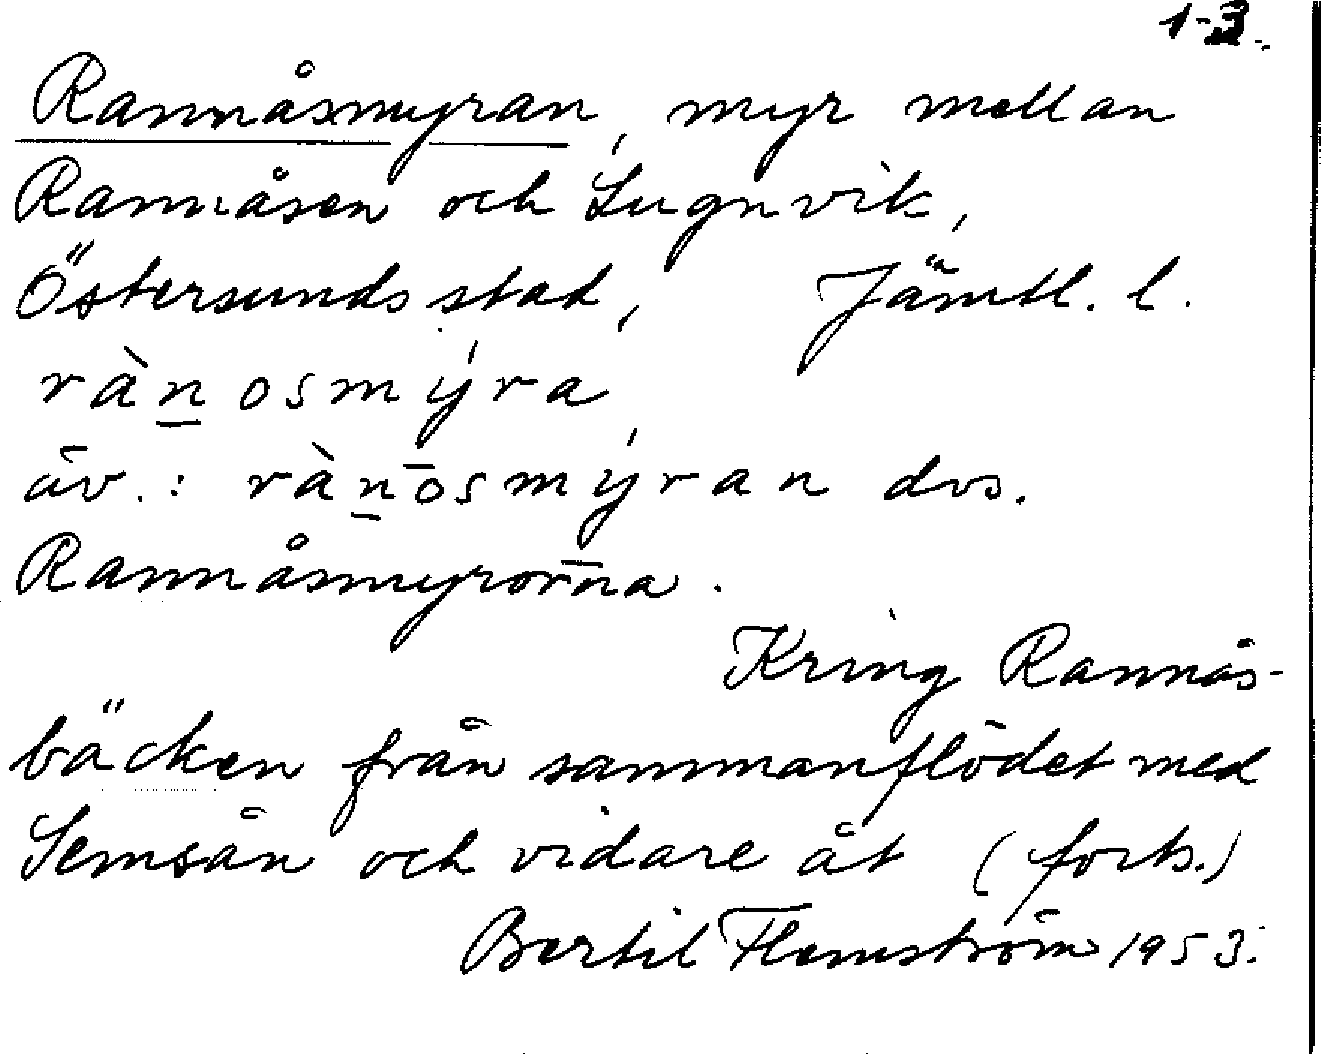 1-3.
Rannåsmyran, myr mellan
Rannåsen och Lugnvik,
Östersunds stad, Jämtl. l.
rànosmýra,
äv.: rànōsmýran dvs.
Rannåsmyrorna.
Kring Rannås-
bäcken från sammanflödet med
Semsån och vidare åt (forts.)
Bertil Flemström 1953.